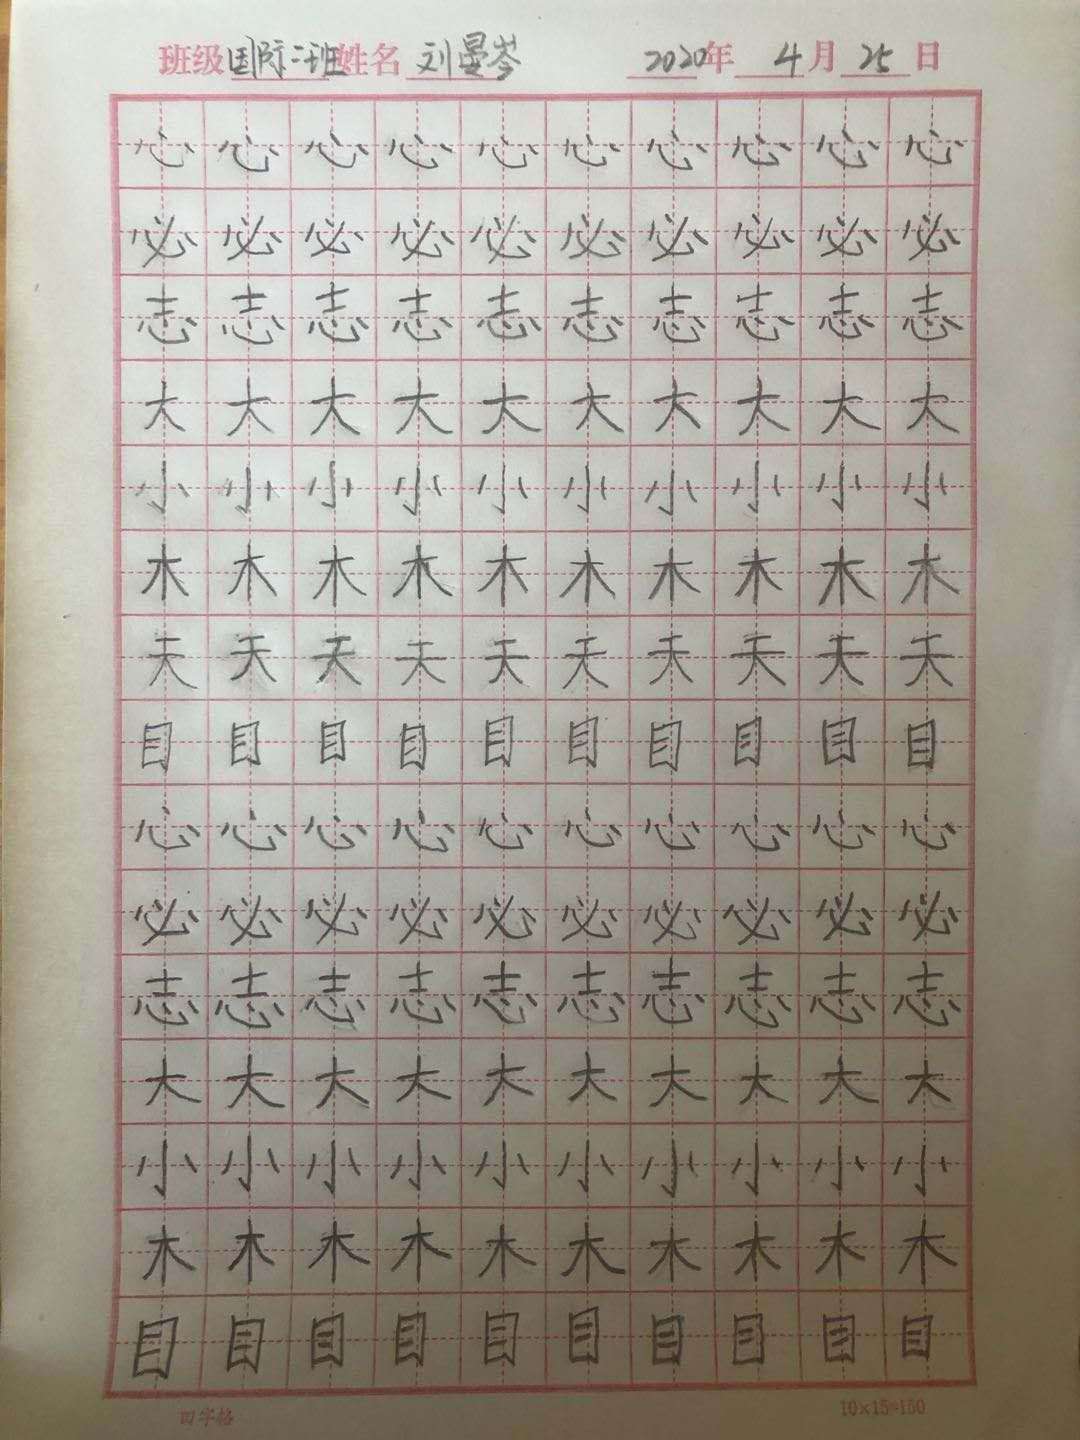 班级国际二班姓名刘曼岑 2020年4月25日
心心心心心心心心心心
必必必必必必必必必必
志志志志志志志志志志
大大大大大大大大大大
小小小小小小小小小小
木木木木木木木木木木
天天天天天天天天天天
目目目目目目目目目目
心心心心心心心心心心
必必必必必必必必必必
志志志志志志志志志志
大大大大大大大大大大
小小小小小小小小小小
木木木木木木木木木木
目目目目目目目目目目
田字格 10×15=150